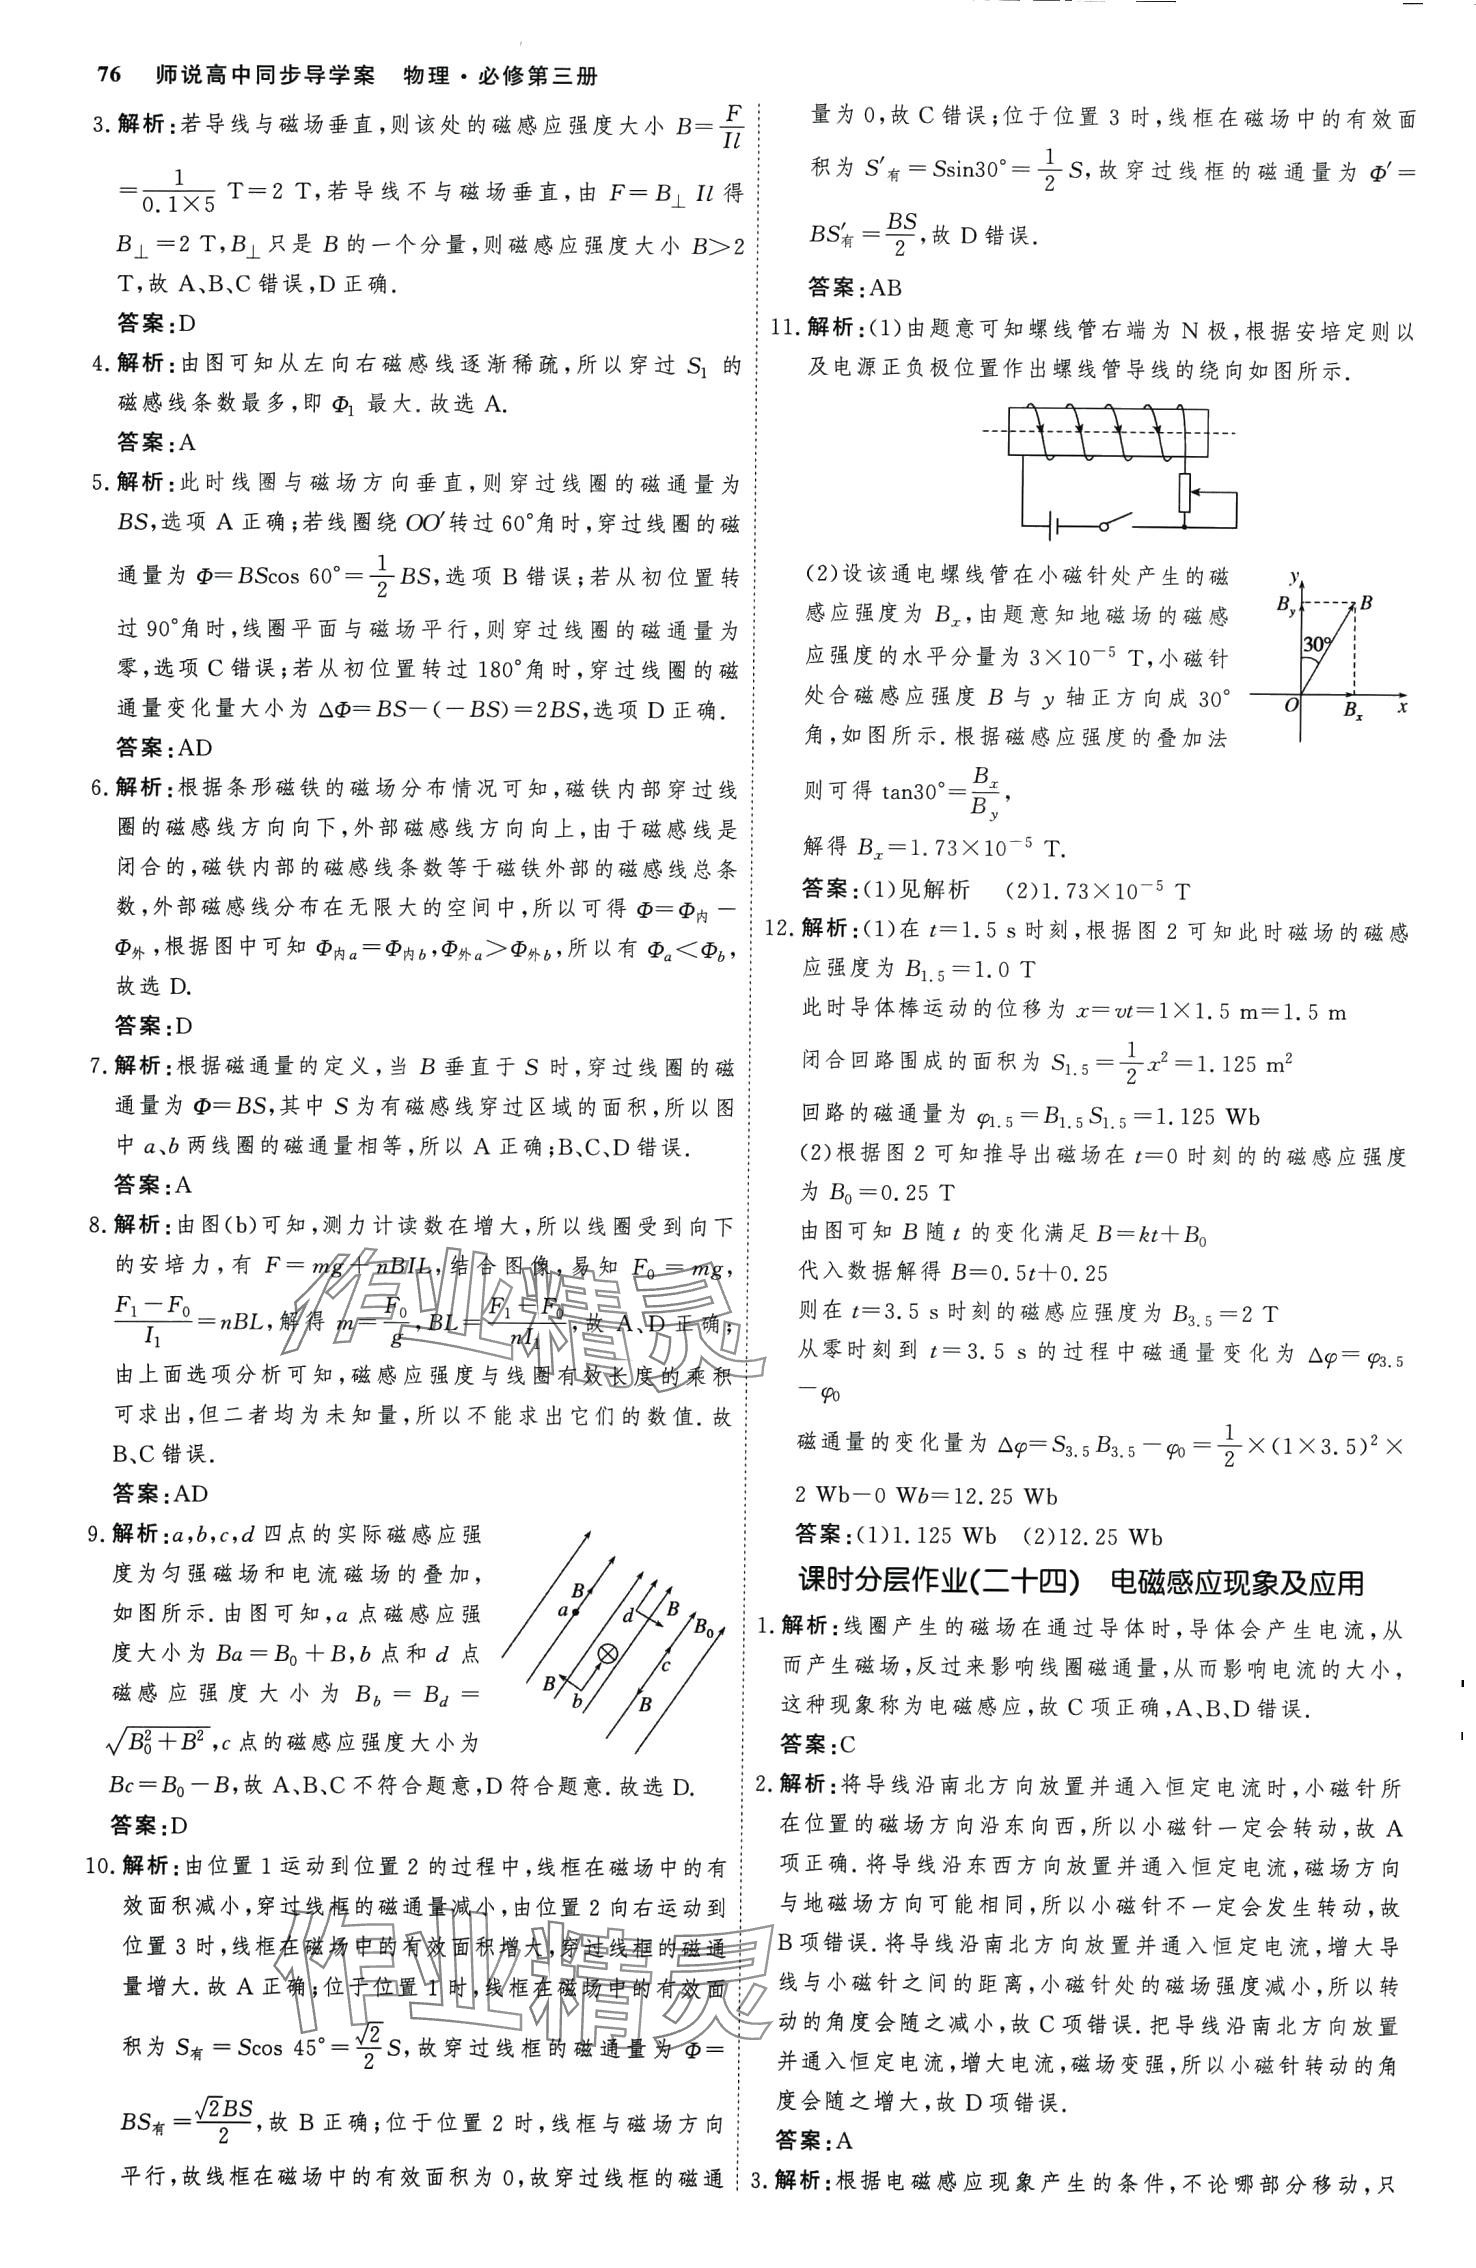 76 师说高中同步导学案 物理·必修第三册
3. 解析:若导线与磁场垂直,则该处的磁感应强度大小 B=F/Il
=1/(0.1×5) T=2 T,若导线不与磁场垂直,由 F=B⊥Il得
B⊥=2 T,B⊥只是 B的一个分量,则磁感应强度大小 B>2
T,故 A、B、C错误,D正确.
答案:D
4. 解析:由图可知从左向右磁感线逐渐稀疏,所以穿过 S₁ 的
磁感线条数最多,即 Φ₁ 最大.故选 A.
答案:A
5. 解析:此时线圈与磁场方向垂直,则穿过线圈的磁通量为
BS,选项 A正确;若线圈绕 OO′转过 60°角时,穿过线圈的磁
通量为 Φ=BScos 60°=1/2 BS,选项 B错误;若从初位置转
过 90°角时,线圈平面与磁场平行,则穿过线圈的磁通量为
零,选项 C错误;若从初位置转过 180°角时,穿过线圈的磁
通量变化量大小为 ΔΦ=BS-(-BS)=2BS,选项 D正确.
答案:AD
6. 解析:根据条形磁铁的磁场分布情况可知,磁铁内部穿过线
圈的磁感线方向向下,外部磁感线方向向上,由于磁感线是
闭合的,磁铁内部的磁感线条数等于磁铁外部的磁感线总条
数,外部磁感线分布在无限大的空间中,所以可得 Φ=Φ内-
Φ外,根据图中可知 Φ内a=Φ内b,Φ外a>Φ外b,所以有 Φa<Φb,
故选 D.
答案:D
7. 解析:根据磁通量的定义,当 B 垂直于 S 时,穿过线圈的磁
通量为 Φ=BS,其中 S为有磁感线穿过区域的面积,所以图
中 a、b两线圈的磁通量相等,所以 A正确;B、C、D错误.
答案:A
8. 解析:由图(b)可知,测力计读数在增大,所以线圈受到向下
的安培力,有 F=mg+nBIL,结合图像,易知 F₀=mg,
(F₁-F₀)/I₁=nBL,解得 m=F₀/g,BL=(F₁-F₀)/nI₁,故 A、D正确;
由上面选项分析可知,磁感应强度与线圈有效长度的乘积
可求出,但二者均为未知量,所以不能求出它们的数值.故
B、C错误.
答案:AD
9. 解析:a,b,c,d 四点的实际磁感应强
度为匀强磁场和电流磁场的叠加,
如图所示.由图可知,a点磁感应强
度大小为 Ba=B₀+B,b点和 d 点
磁感应强度大小为 Bb=Bd=
√(B₀²+B²),c点的磁感应强度大小为
Bc=B₀-B,故 A、B、C不符合题意,D符合题意.故选 D.
B
a
d
B
B₀
c
B
b
B
答案:D
10. 解析:由位置 1运动到位置 2的过程中,线框在磁场中的有
效面积减小,穿过线框的磁通量减小,由位置 2向右运动到
位置 3时,线框在磁场中的有效面积增大,穿过线框的磁通
量增大.故 A正确;位于位置 1时,线框在磁场中的有效面
积为 S有=Scos 45°=√2/2 S,故穿过线框的磁通量为 Φ=
BS有=√2BS/2,故 B正确;位于位置 2时,线框与磁场方向
平行,故线框在磁场中的有效面积为 0,故穿过线框的磁通
量为 0,故 C错误;位于位置 3时,线框在磁场中的有效面
积为 S′有=Ssin30°=1/2 S,故穿过线框的磁通量为 Φ′=
BS′有=BS/2,故 D错误.
答案:AB
11. 解析:(1)由题意可知螺线管右端为 N极,根据安培定则以
及电源正负极位置作出螺线管导线的绕向如图所示.
(2)设该通电螺线管在小磁针处产生的磁
感应强度为 Bx,由题意知地磁场的磁感
应强度的水平分量为 3×10⁻⁵ T,小磁针
处合磁感应强度 B 与 y 轴正方向成 30°
角,如图所示.根据磁感应强度的叠加法
则可得 tan30°=Bx/By,
y
By
B
30°
O
Bx
x
解得 Bx=1.73×10⁻⁵ T.
答案:(1)见解析 (2)1.73×10⁻⁵ T
12. 解析:(1)在 t=1.5 s时刻,根据图 2可知此时磁场的磁感
应强度为 B1.5=1.0 T
此时导体棒运动的位移为 x=vt=1×1.5 m=1.5 m
闭合回路围成的面积为 S1.5=1/2 x²=1.125 m²
回路的磁通量为 φ1.5=B1.5S1.5=1.125 Wb
(2)根据图 2可知推导出磁场在 t=0时刻的的磁感应强度
为 B₀=0.25 T
由图可知 B随 t 的变化满足 B=kt+B₀
代入数据解得 B=0.5t+0.25
则在 t=3.5 s时刻的磁感应强度为 B3.5=2 T
从零时刻到 t=3.5 s的过程中磁通量变化为 Δφ=φ3.5
-φ₀
磁通量的变化量为 Δφ=S3.5B3.5-φ₀=1/2×(1×3.5)²×
2 Wb-0 Wb=12.25 Wb
答案:(1)1.125 Wb (2)12.25 Wb
课时分层作业(二十四) 电磁感应现象及应用
1. 解析:线圈产生的磁场在通过导体时,导体会产生电流,从
而产生磁场,反过来影响线圈磁通量,从而影响电流的大小,
这种现象称为电磁感应,故 C项正确,A、B、D错误.
答案:C
2. 解析:将导线沿南北方向放置并通入恒定电流时,小磁针所
在位置的磁场方向沿东向西,所以小磁针一定会转动,故 A
项正确.将导线沿东西方向放置并通入恒定电流,磁场方向
与地磁场方向可能相同,所以小磁针不一定会发生转动,故
B项错误.将导线沿南北方向放置并通入恒定电流,增大导
线与小磁针之间的距离,小磁针处的磁场强度减小,所以转
动的角度会随之减小,故 C项错误.把导线沿南北方向放置
并通入恒定电流,增大电流,磁场变强,所以小磁针转动的角
度会随之增大,故 D项错误.
答案:A
3. 解析:根据电磁感应现象产生的条件,不论哪部分移动,只
作业精灵
作业精灵